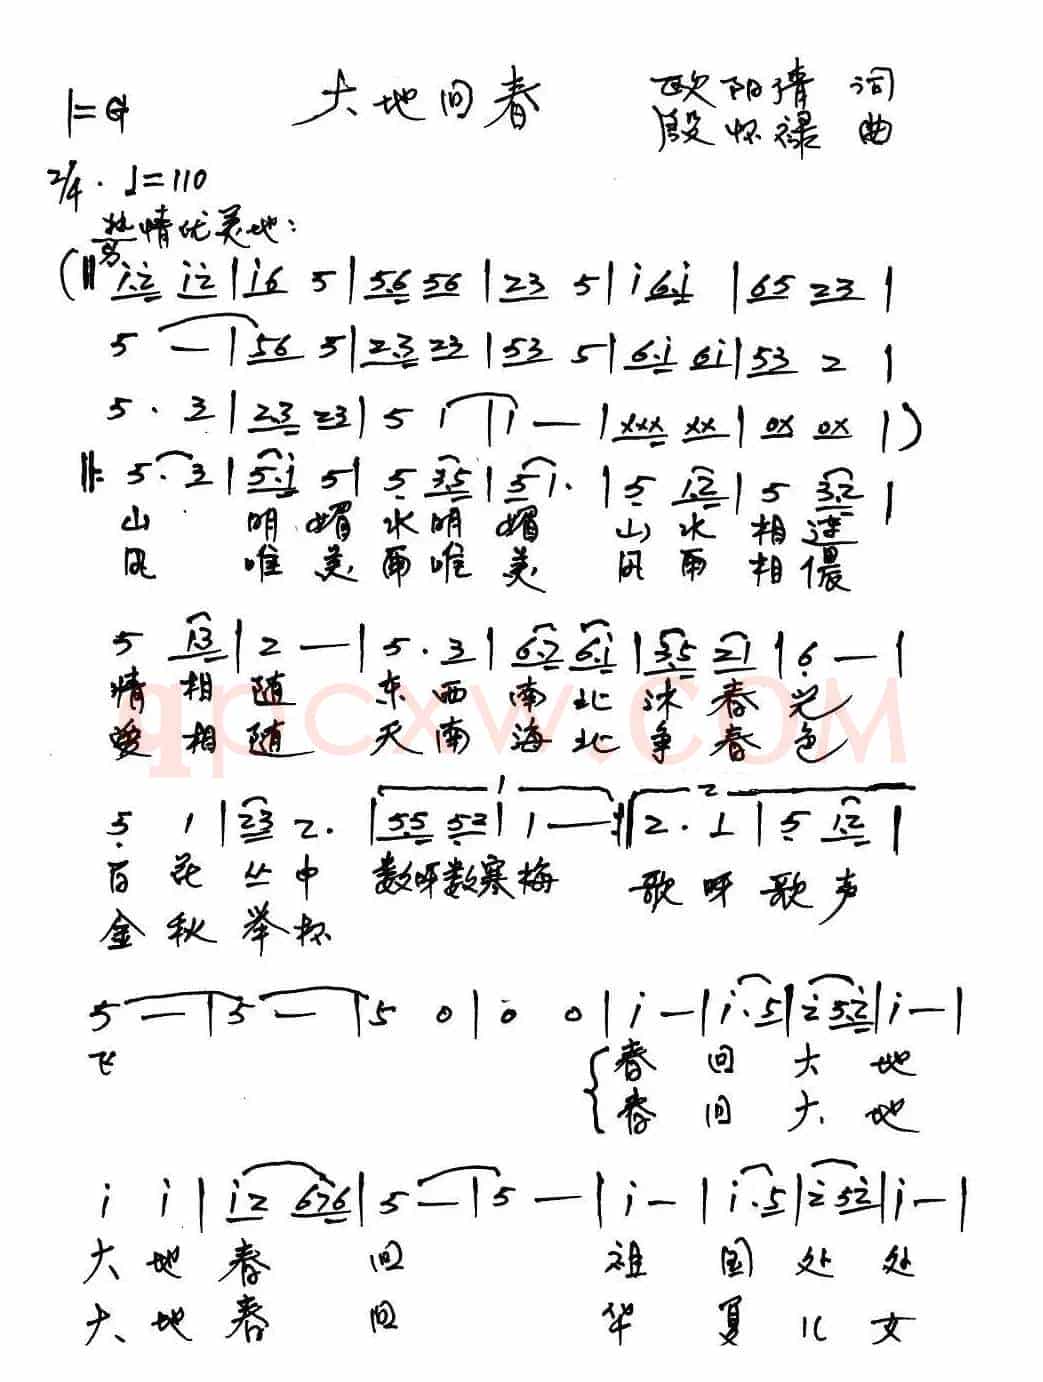 1=G 大地回春 欧阳清 词
殷怀禄 曲
2/4 · ♩=110
热情优美地:
(‖ i.2̇ i2̇ | i6 5 | 5.6 56 | 23 5 | i 6.i | 65 23 |
5 — | 56 5 | 2.3 23 | 53 5 | 6.i 6i | 53 2 |
5 · 3 | 2.3 23 | 5 i | i — | xxx xx | 0x 0x | )
‖: 5 · 3 | 5.i 5 | 5 3.5 | 5 1. | 5 1.2 | 5 3.2 |
山 明 媚 水 明 媚 山 水 相 连
风 唯 美 雨 唯 美 风 雨 相 偎
5 13 | 2 — | 5 . 3 | 6.2 6.i | 3.5 21 | 6 — |
情 相 随 东 西 南 北 沐 春 光
爱 相 随 天 南 海 北 争 春 色
qpcxw.COM
5 1 | 23 2. | 1 55 52 | 1 — :‖ 2 2 . 1 | 5 1.2 |
百 花 丛 中 数呀数寒梅 歌 呀 歌 声
金 秋 举 杯
5 — | 5 — | 5 0 | 0 0 | i — | i . 5 | 2̇ 5.2̇ | i — |
飞 春 回 大 地
春 回 大 地
i i | i2 676 | 5 — | 5 — | i — | i . 5 | 2̇ 52̇ | i — |
大 地 春 回 祖 国 处 处
大 地 春 回 华 夏 儿 女